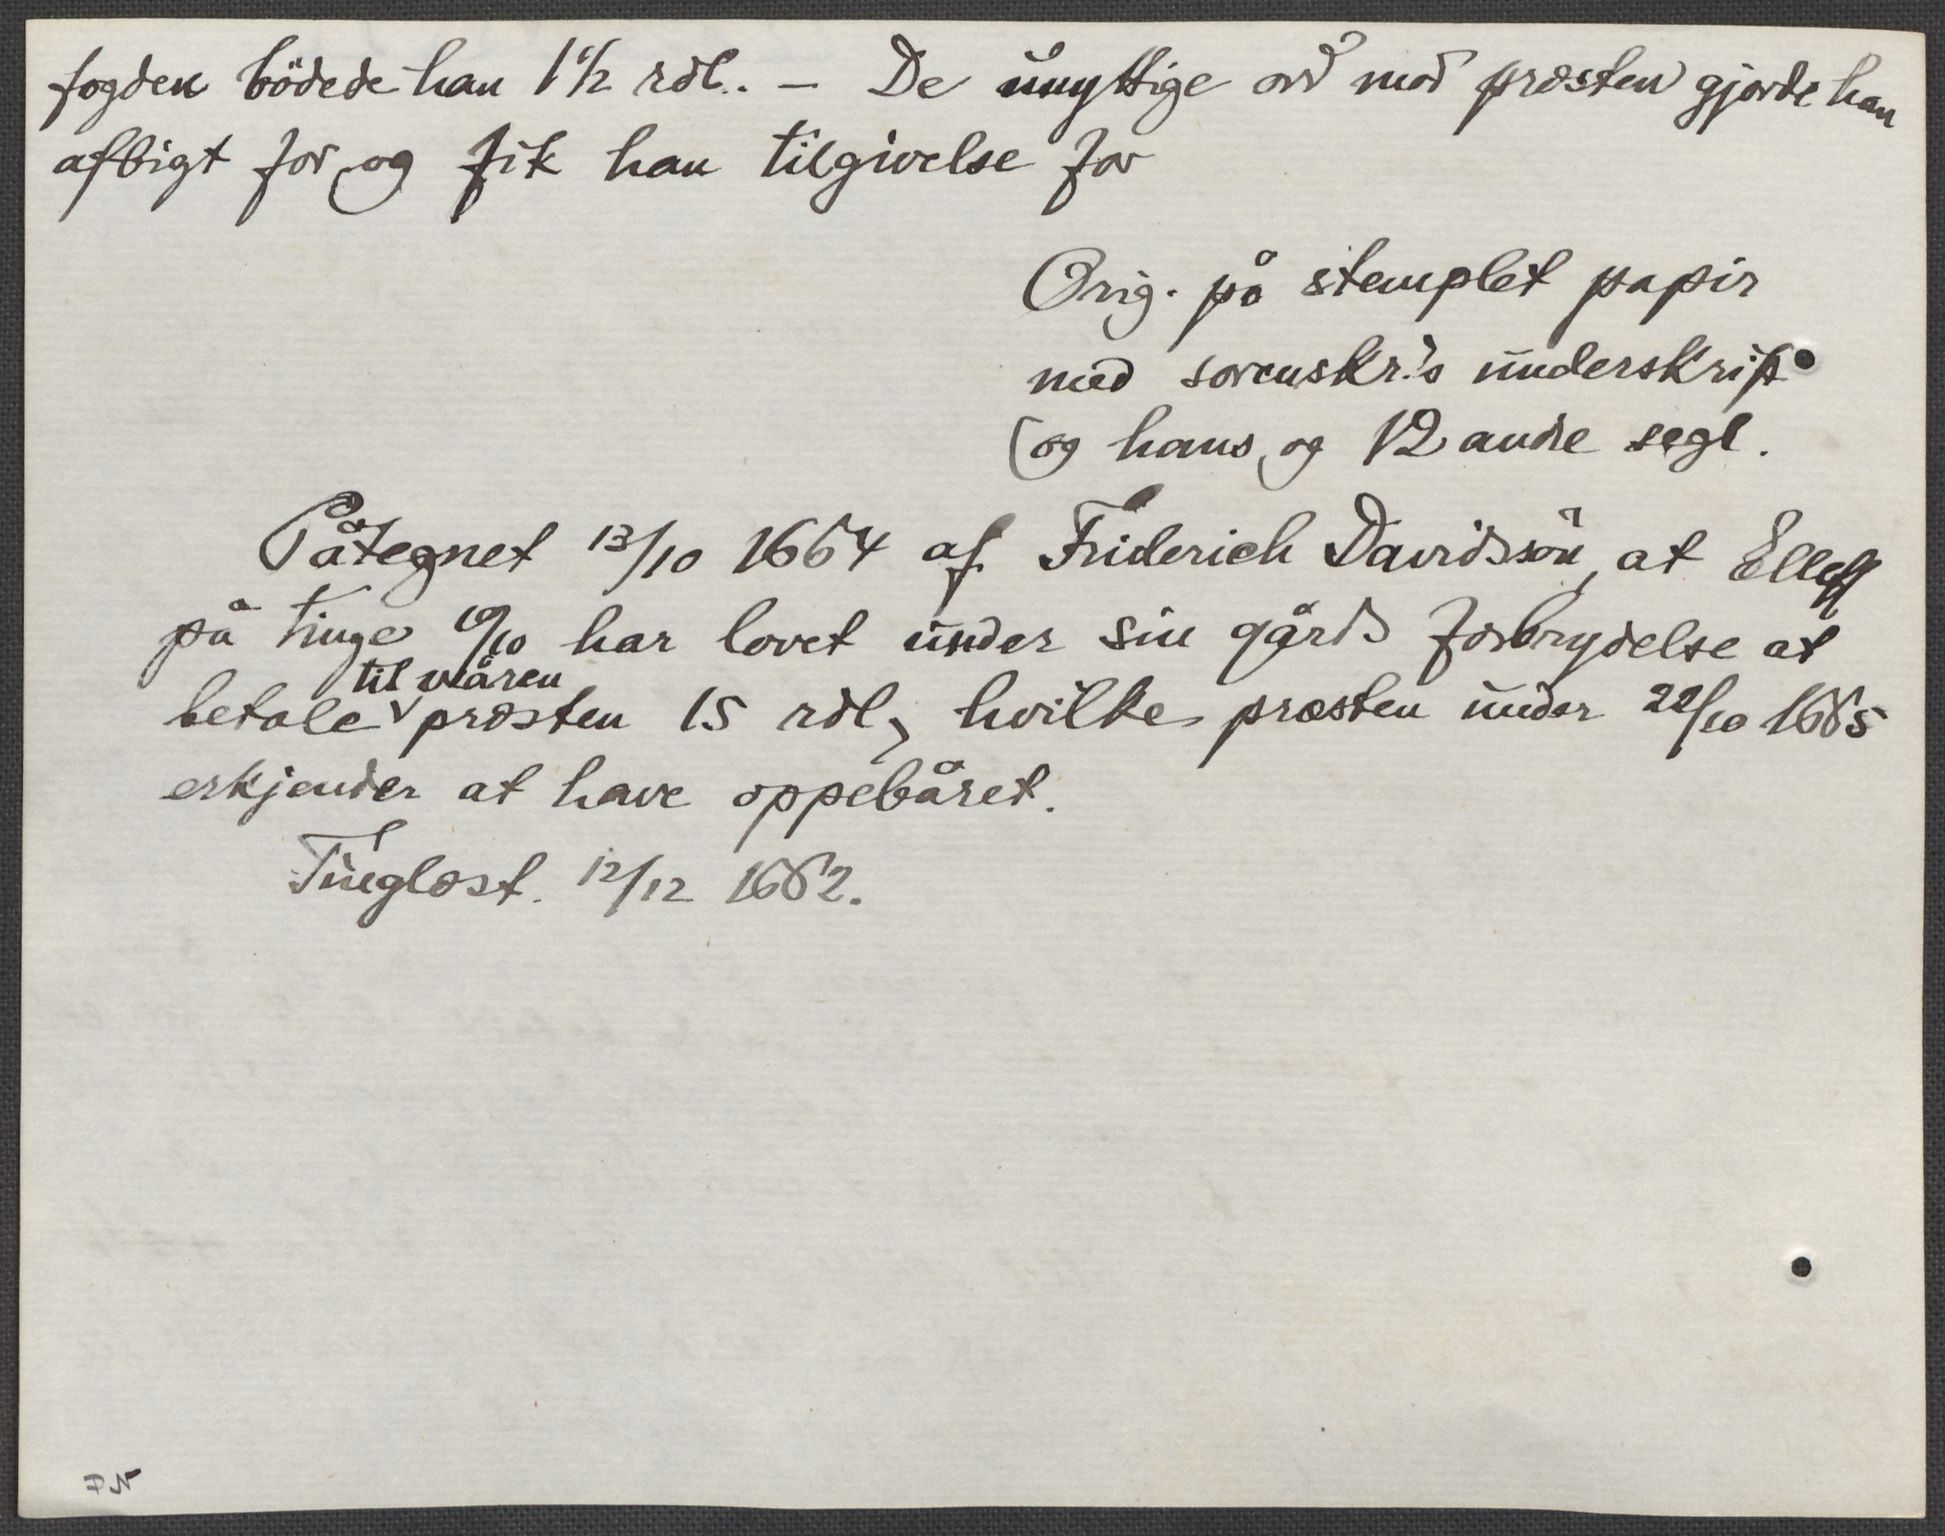 fogden bödede han 1 1/2 rdl. – De unyttige ord mod præsten gjorde han
afbigt for og fik han tilgivelse for
Orig. på stemplet papir
med sorenskr.'s underskrift
og hans og 12 andre segl.
Påtegnet 13/10 1664 af Friderich Davidssön, at Elleff
på tinge 10/10 har lovet under sin gårds forbrydelse at
til våren
betale præsten 15 rdl, hvilke præsten under 22/10 1665
erkjender at have oppebåret.
Tinglæst. 12/12 1662.